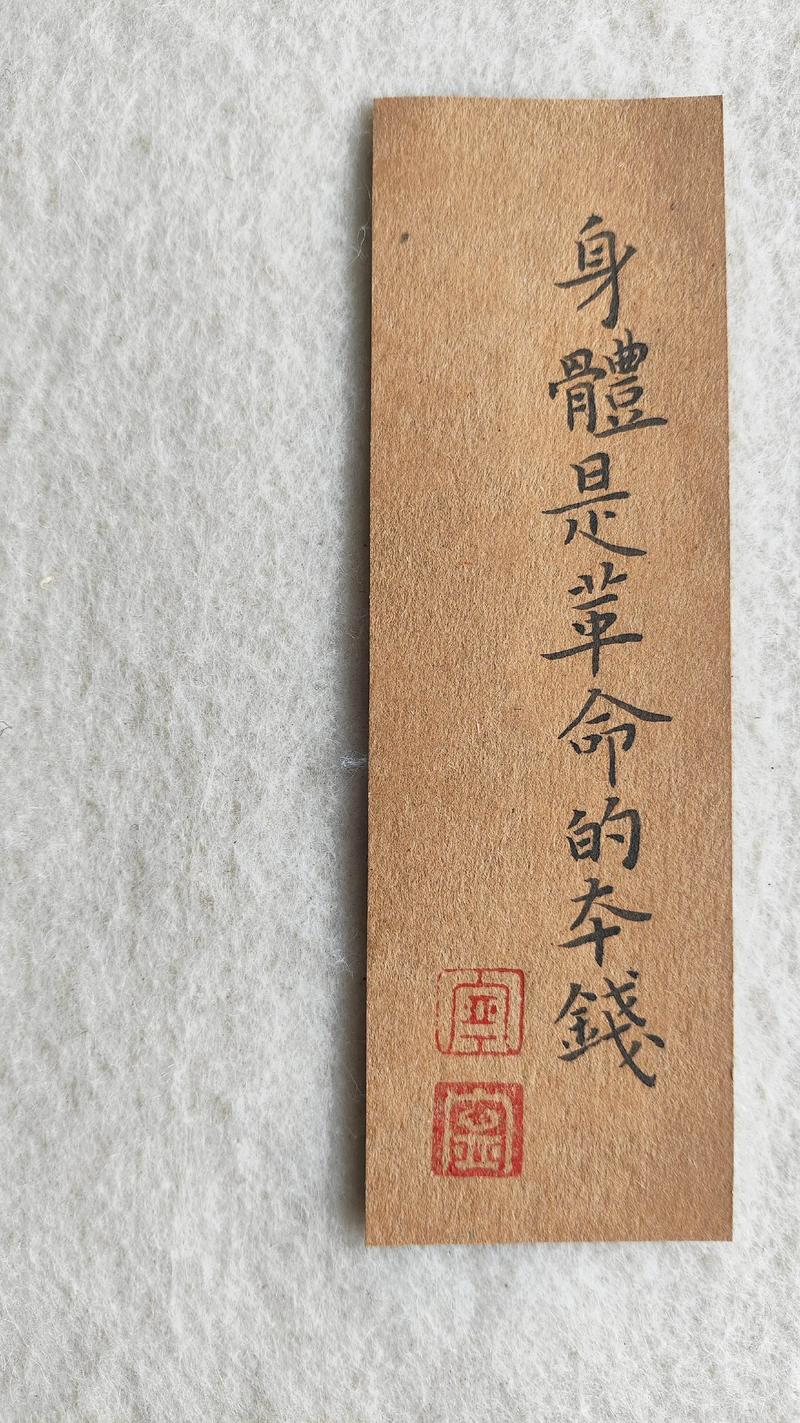 身體是革命的本錢